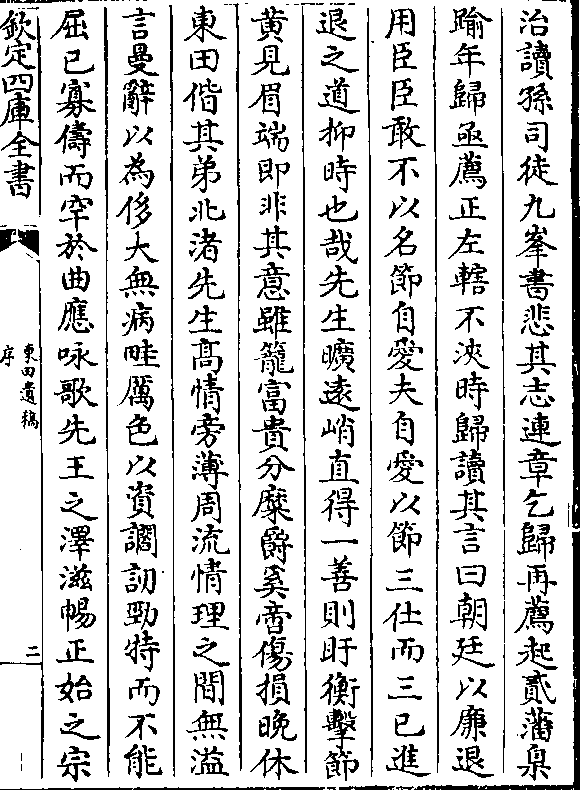 治讀孫司徒九峯書悲其志連章乞歸再薦起貳藩臬
踰年歸亟薦正左轄不浹時歸讀其言曰朝廷以廉退
用臣臣敢不以名節自愛夫自愛以節三仕而三已進
退之道抑時也哉先生曠遠峭直得一善則盱衡擊節
黄見眉端即非其意雖籠富貴分糜爵奚啻傷損晚休
東田偕其弟北渚先生髙情旁薄周流情理之間無溢
言曼辭以為侈大無病畦厲色以資讕訒勁特而不能
屈已寡儔而罕於曲應咏歌先王之澤滋暢正始之宗
欽定四庫全書
東田遺稿
序
二